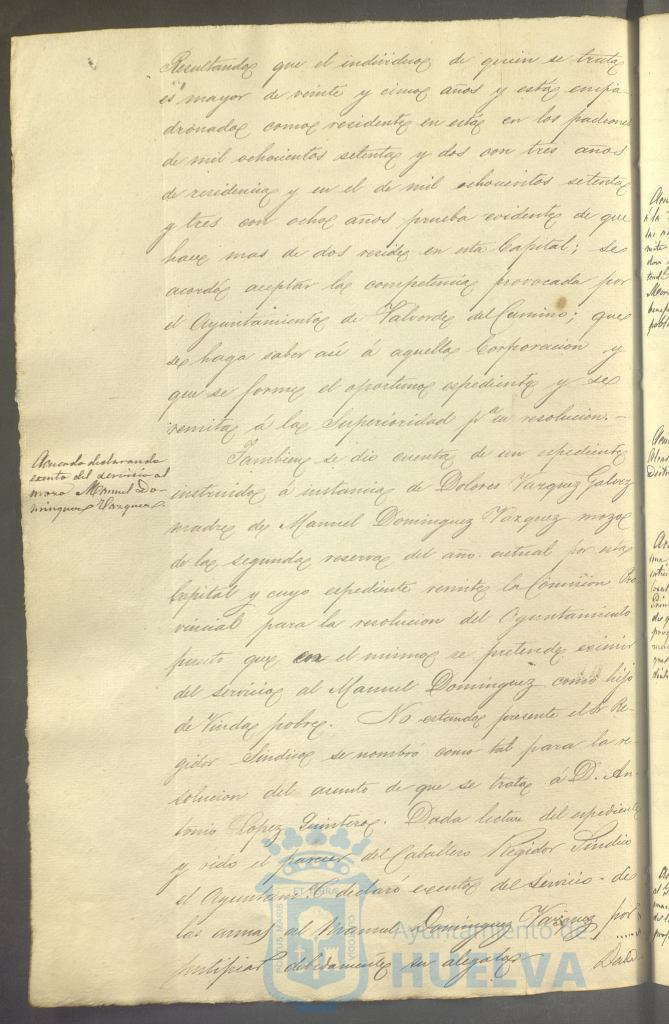 Resultando que el individuo de quien se trata
es mayor de veinte y cinco años y está empa-
dronado como residente en esta en los padrones
de mil ochocientos setenta y dos con tres años
de residencia y en el de mil ochocientos setenta
y tres con ocho años prueba evidente de que
hace mas de dos reside en esta Capital; se
acordó aceptar la competencia provocada por
el Ayuntamiento de Valverde del Camino; que
se haga saber así á aquella Corporacion y
que se forme el oportuno espediente y se
remita á la Superioridad pª su resolucion.-
Acuerdo declarando
esento del servicio al
mozo Manuel Do-
minguez Vazquez
Tambien se dio cuenta de un espediente
instruido á instancia de Dolores Vazquez Galvez
madre de Manuel Dominguez Vazquez mozo
de la segunda reserva del año actual por esta
Capital y cuyo espediente remite la Comision Pro
vincial para la resolucion del Ayuntamiento
puesto que en el mismo se pretende eximir
del servicio al Manuel Dominguez como hijo
de Viuda pobre. No estando presente el Sr Re-
gidor Sindico se nombró como tal para la re-
solucion del asunto de que se trata á D. An-
tonio Lopez Quintero. Dada lectura del espediente
y oido el parecer del Caballero Regidor Sindico
el Ayuntam.to declaró exento del servicio de
las armas al Manuel Dominguez Vazquez por
justificar debidamente su alegato.
Dada
PORTUS MARIS ET TERRAE CUSTODIA
Ayuntamiento de
HUELVA